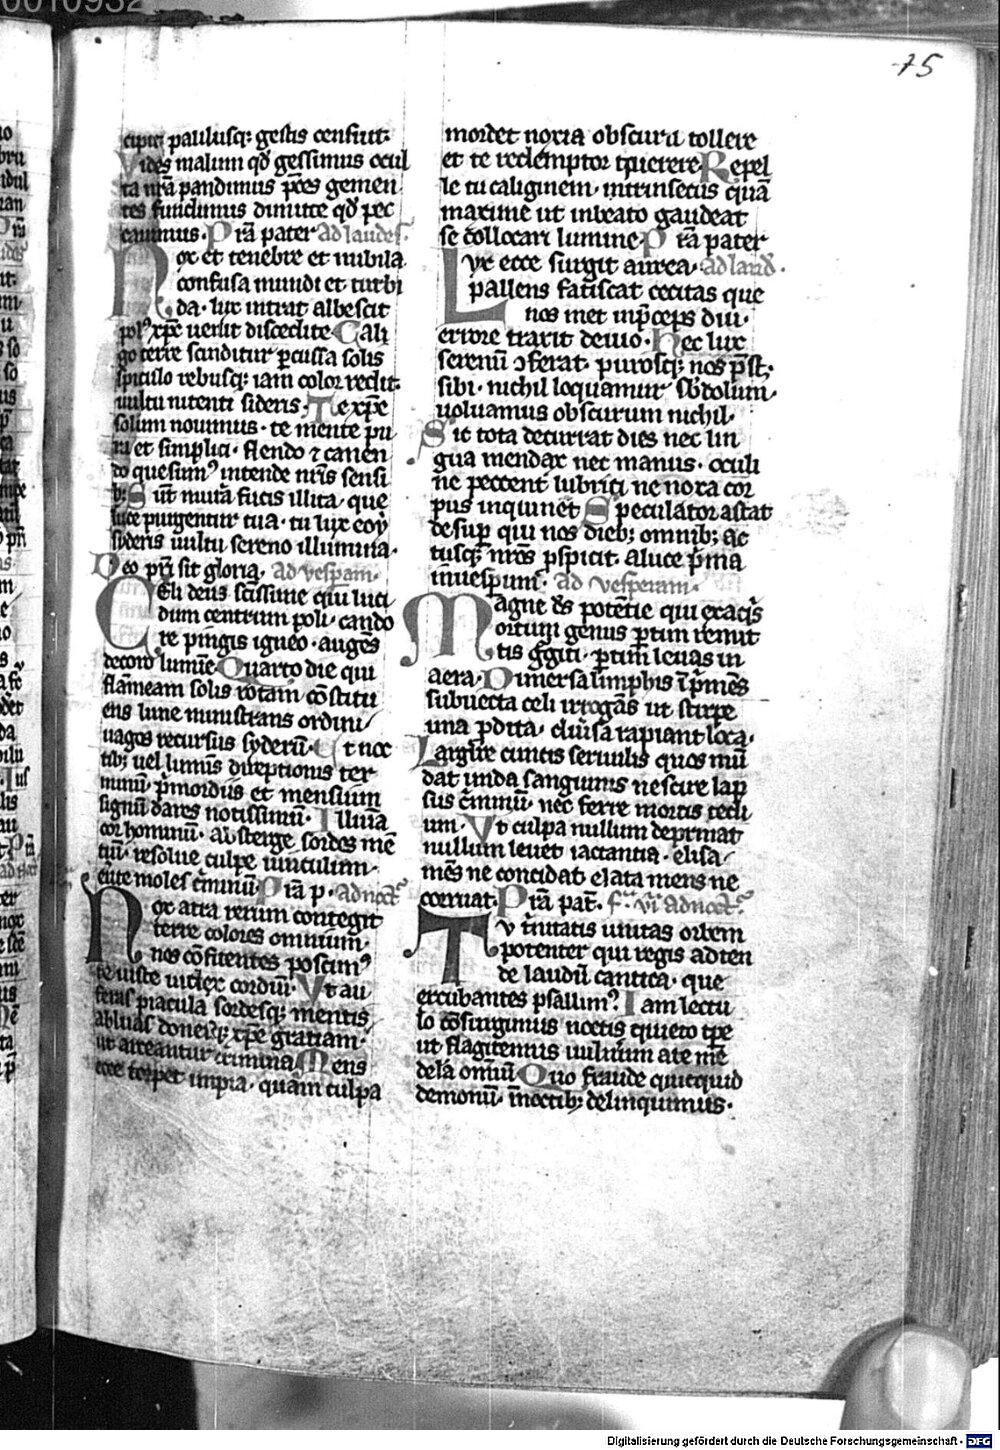 75
cipit paulusq; gestis censuit.
Vides malum qd gessimus occul
ta nrā pandimus p̄ces gemen
tes fundimus dimitte qd pec
cauimus. P rā pater ad laudes.
Nox et tenebre et nubila
confusa mundi et turbi
da. lux intrat albescit
pol⁹ xp̄e uenit discedite. Cali
go terre scinditur p̄cussa solis
spiculo rebusq; iam color redit.
uultu nitenti sideris. Te xp̄e
solum nouimus. te mente pu
ra et simplici. flendo ⁊ canen
do quesum⁹ intende nr̄is sensi
b; Sūt multa fucis illita. que
luce purgentur tua. tu lux eoy
syderis uultu sereno illumina.
Deo pr̄i sit gloria. ad vesperam.
Celi deus scīssime qui luci
dum centrum poli. cando
re pingis igneo. augēs
decoro lumīe Quarto die qui
flāmeam solis rotam cōstitu
ens lune ministrans ordini
uagos recursus syderū. Ut noc
tib; uel lumīs direptionis ter
minū. p̄mordiis et mensium
signū dares notissimū. Illumīa
cor hominū. absterge sordes mē
tiū. resolue culpe uinculum.
euīte moles c̄minū P rā p. ad noct̄.
Nox atra rerum contegit
terre colores omnium.
nos cōfitentes poscim⁹
te iuste iudex cordiū. Vt au
feras piacula sordesq; mentis
abluas donesq; xp̄e gratiam.
ut arceantur crimina Mens
ecce torpet impia. quam culpa
mordet noxia obscura tollere
et te redemptor querere Repel
le tu caliginem. intrinsecus quā
maxime ut in beato gaudeat
se collocari lumine P rā pater
Lux ecce surgit aurea. ad laud.
pallens fatiscat cecitas que
nos met in p̄ceps diu.
errore traxit deuio. Hec lux
serenū ɔferat. purosq; nos p̄st;
sibi. nichil loquamur sb̄dolum.
uoluamus obscurum nichil.
Sic tota decurrat dies nec lin
gua mendax nec manus. oculi
ne peccent lubrici ne noxa cor
pus inquinet Speculator astat
desup̄ qui nos dieb; omnib; ac
tusq; nr̄os p̄spicit. a luce p̄ma
in uesperum. ad vesperam.
Magne d̄s potētie qui ex aq̄s
ortum genus p̄tim remit
tis ḡgiti. p̄tim leuas in
aera. Dimersa limphis īp̄mēs
subuecta celi irrogās ut stirpe
una p̄dita. diuersa rapiant loca.
Largire cunctis seruulis quos mū
dat unda sanguinis nescire lap
sus c̄minū. nec ferre mortis tedi
um. Vt culpa nullum deprimat
nullum leuet iactantia. elisa
mēs ne concidat elata mens ne
corruat. P rā pat̄. f̄. vi ad noct̄.
Tu t̄nitatis unitas orbem
potenter qui regis adten
de laudū cantica. que
excubantes psallim⁹. Iam lectu
lo cōsurgimus noctis quieto tp̄e
ut flagitemus uulnum a te mē
delā omiū Quo fraude quicquid
demonū. in noctib; delinquimus.
Digitalisierung gefördert durch die Deutsche Forschungsgemeinschaft - DFG